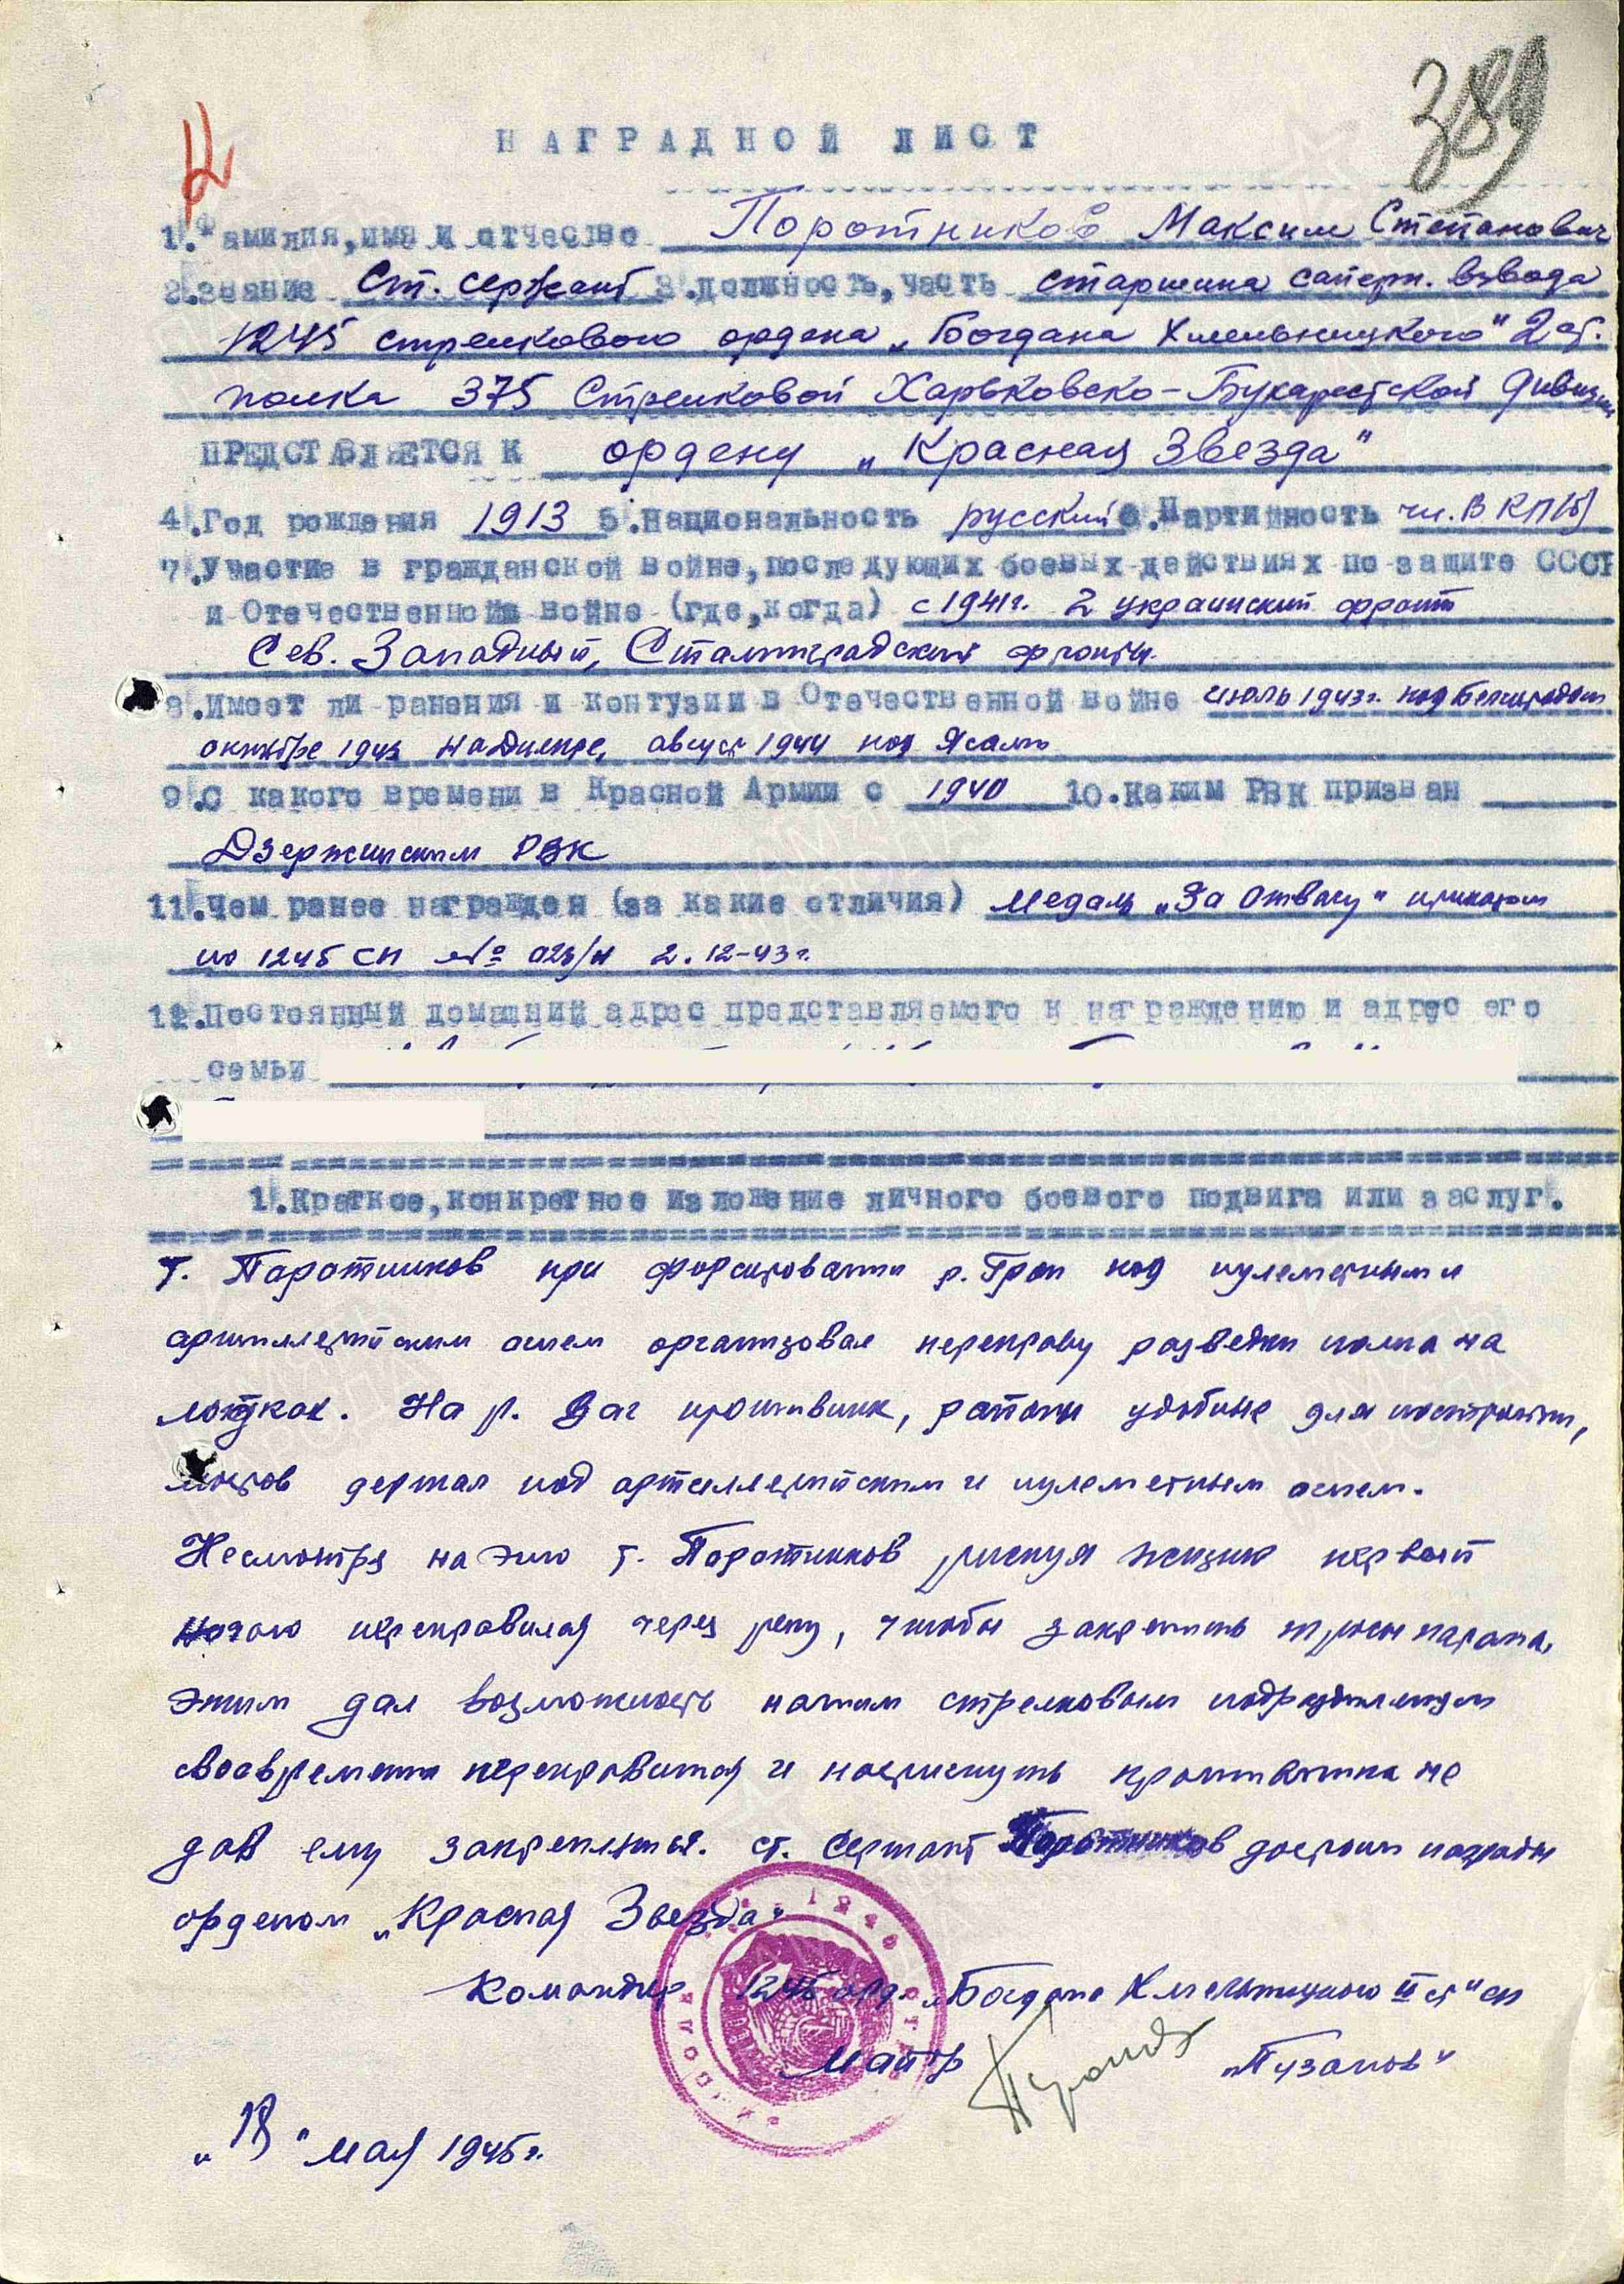 389
НАГРАДНОЙ ЛИСТ
1. Фамилия, имя и отчество Поротников Максим Степанович
2. звание Ст. сержант 3. должность, часть старшина саперн. взвода
1245 стрелкового ордена „Богдана Хмельницкого" 2 ст.
полка 375 Стрелковой Харьковско-Бухарестской дивизии
ПРЕДСТАВЛЯЕТСЯ К ордену „Красная Звезда"
4. Год рождения 1913 5. Национальность русский 6. Партийность чл. ВКП(б)
7. Участие в гражданской войне, последующих боевых действиях по защите СССР
и Отечественной войне (где, когда) с 1941 г. 2 украинский фронт
Сев. Западный, Сталинградский фронты.
8. Имеет ли ранения и контузии в Отечественной войне июль 1943 г. под Белгородом
октябре 1943 на Днепре, август 1944 под Яссами
9. С какого времени в Красной Армии с 1940 10. каким РВК призван
Дзержинским РВК
11. Чем ранее награжден (за какие отличия) медаль „За Отвагу" приказом
по 1245 СП № 023/н 2.12-43 г.
12. Постоянный домашний адрес представляемого к награждению и адрес его
семьи
1. Краткое, конкретное изложение личного боевого подвига или заслуг.
т. Поротников при форсировании р. Грон под пулеметным и
артиллерийским огнем организовал переправу разведки полка на
лодках. На р. Ваг противник, районы удобные для построения,
мостов держал под артиллерийским и пулеметным огнем.
Несмотря на это т. Поротников рискуя жизнью первый
ночью переправился через реку, чтобы закрепить тросы парома,
этим дал возможность нашим стрелковым подразделениям
своевременно переправится и настигнуть противника не
дав ему закрепиться. ст. Сержант Поротников достоин награды
орденом „Красная Звезда"
Командир 1245 орд. „Богдана Хмельницкого II ст" сп
Майор „Пузанов"
" мая 1945 г.